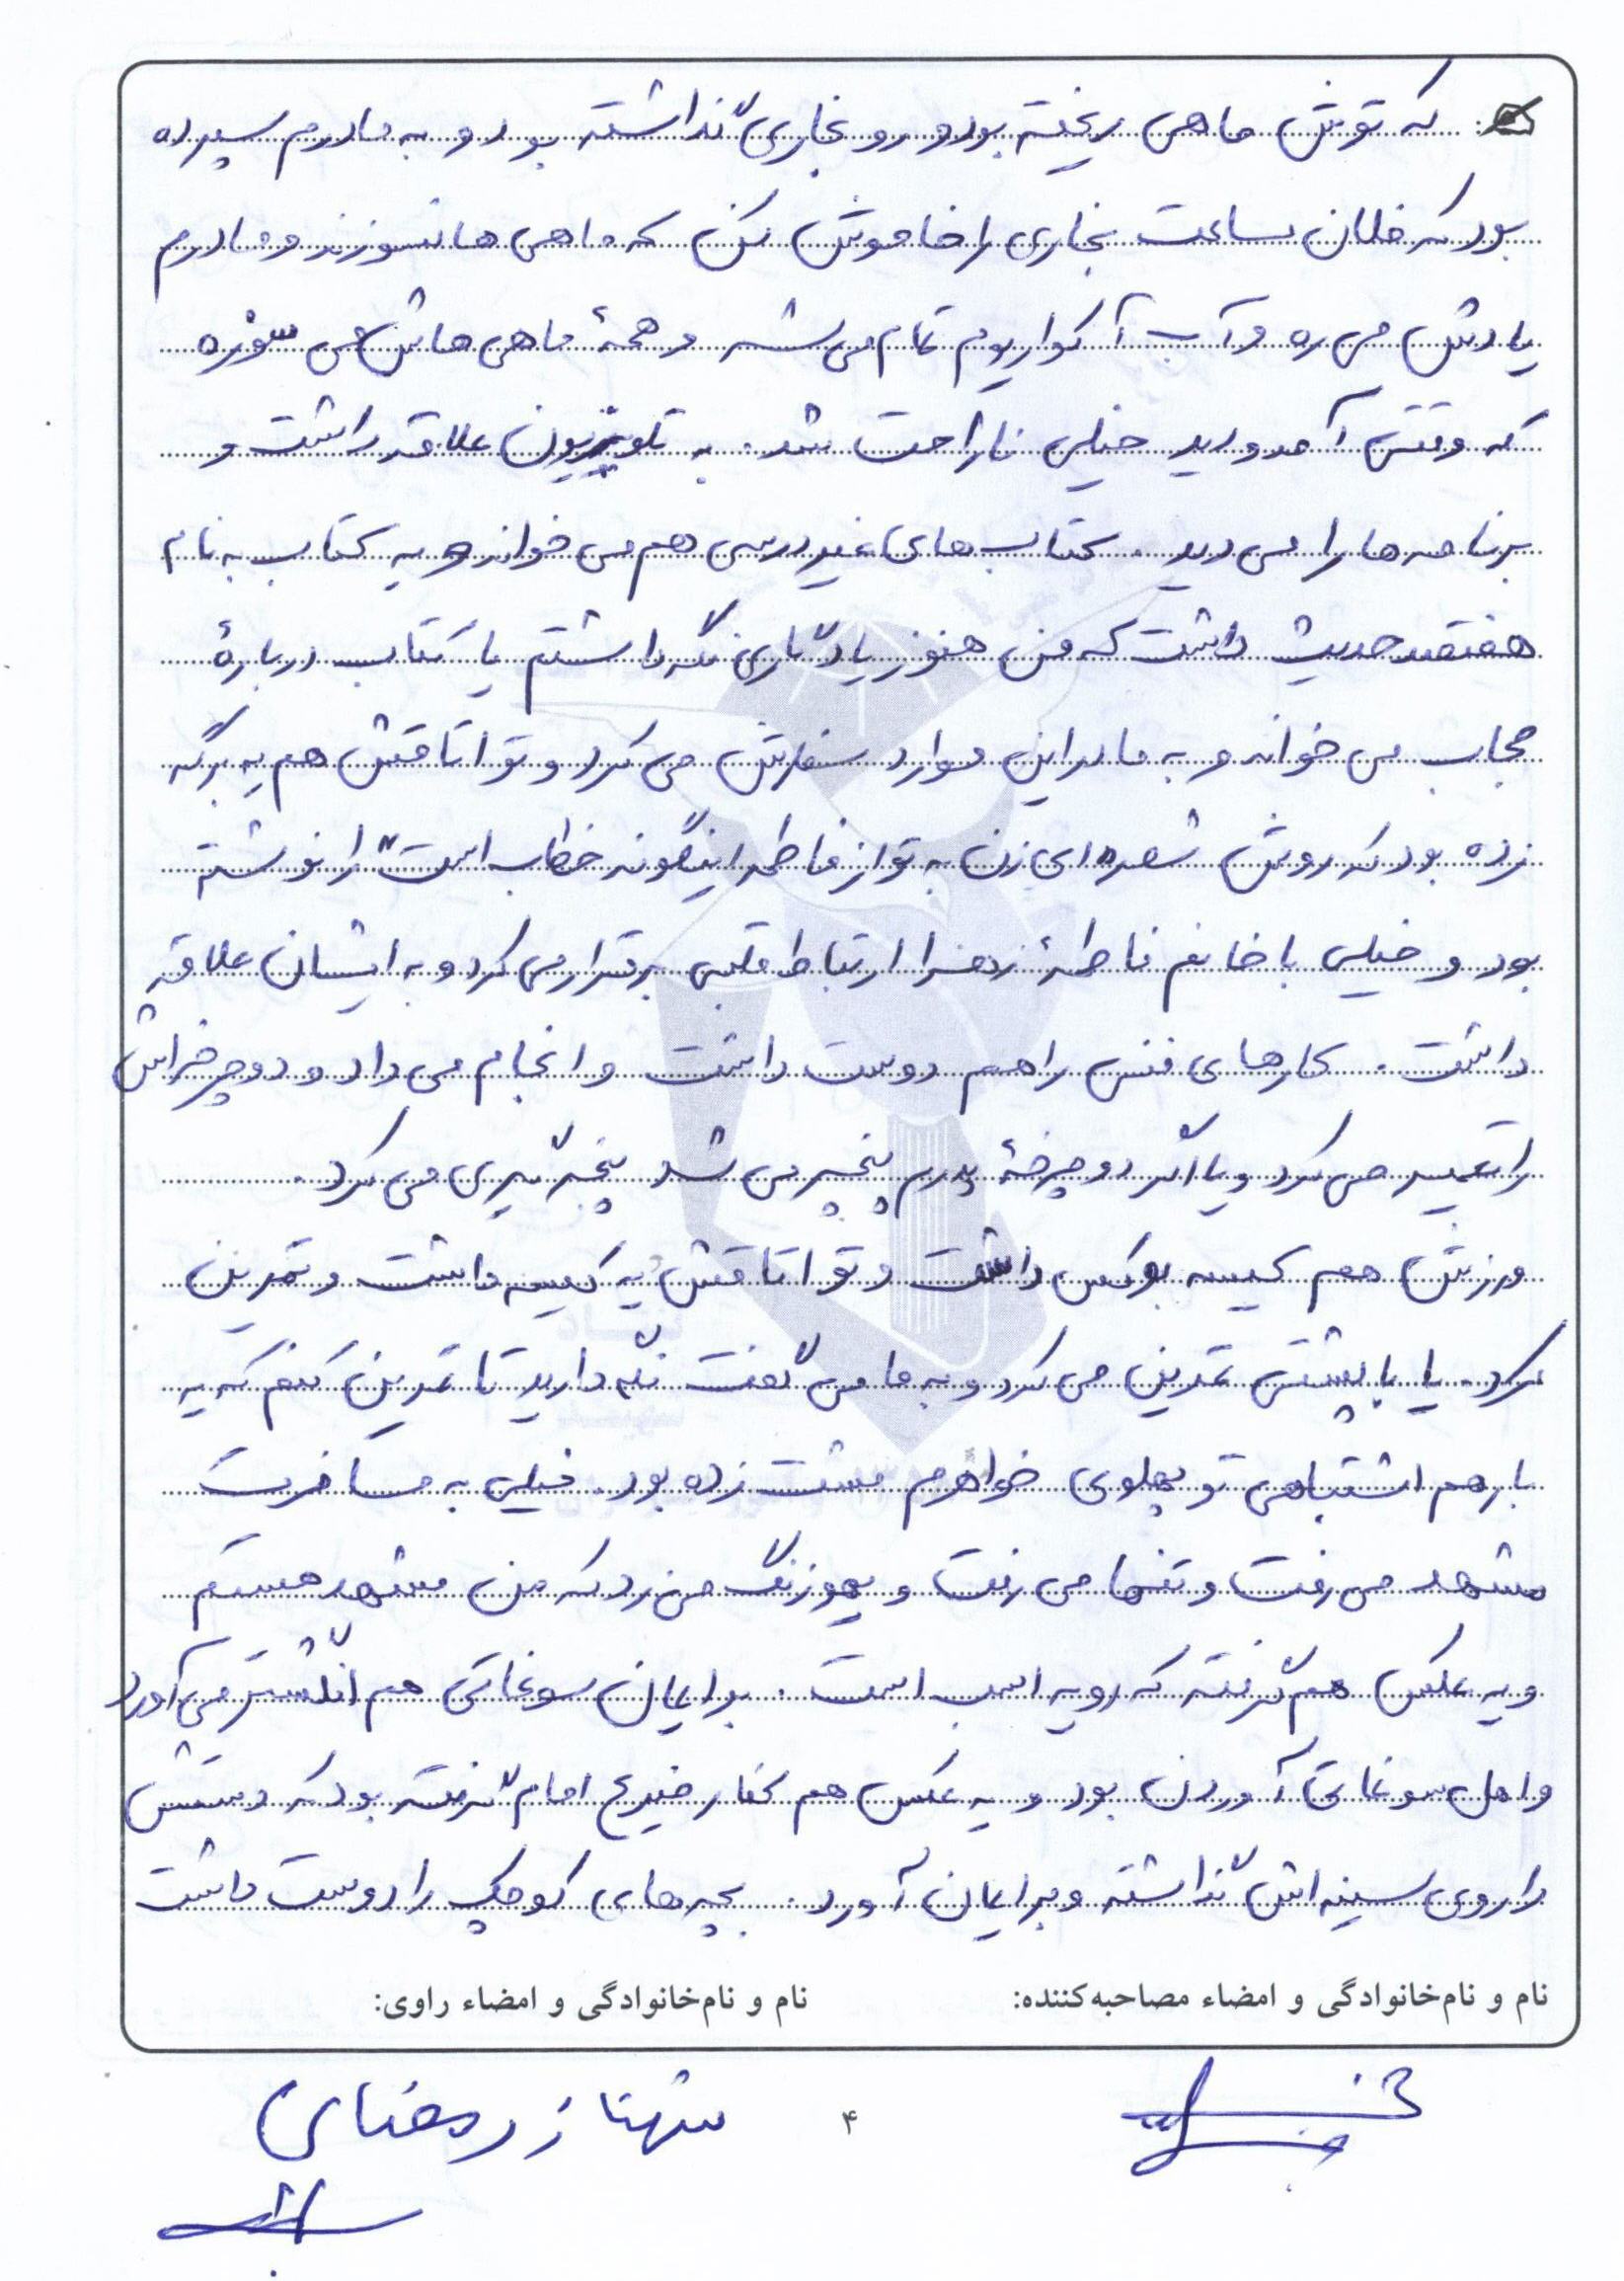 که توش ماهی ریخته بود و رو بخاری گذاشته بود و به مادرم سپرده
بود که فلان ساعت بخاری را خاموش کن که ماهی ها نسوزند و مادرم
یادش می ره و آب آکواریوم تمام می شه و همهٔ ماهی هاش می سوزه
که وقتی آمد و دید خیلی ناراحت شد. به تلویزیون علاقه داشت و
برنامه ها را می دید. کتاب های غیر درسی هم می خواند و یه کتاب به نام
هفتصد حدیث داشت که من هنوز یادگاری نگه داشتم یا کتاب دربارهٔ
حجاب می خواند و به ما در این موارد سفارش می کرد و تو اتاقش هم یه برگه
زده بود که روش شعر «ای زن به تو از فاطمه اینگونه خطاب است» را نوشته
بود و خیلی با خانم فاطمهٔ زهرا ارتباط قلبی برقرار می کرد و به ایشان علاقه
داشت. کارهای فنی را هم دوست داشت و انجام می داد و دوچرخه اش
را تعمیر می کرد و یا اگر دوچرخهٔ پدرم پنچر می شد پنچرگیری می کرد.
ورزش هم کیسه بوکس داشت و تو اتاقش یه کیسه داشت و تمرین
می کرد. یا با پشتی تمرین می کرد و به ما می گفت نگه دارید تا تمرین کنم که یه
بار هم اشتباهی تو پهلوی خواهرم مشت زده بود. خیلی به مسافرت
مشهد می رفت و تنها می رفت و یهو زنگ می زد که من مشهد هستم
و یه عکس هم گرفته که رو یه اسب است. برایمان سوغاتی هم انگشتر می آورد
و اهل سوغاتی آوردن بود و یه عکس هم کنار ضریح امام گرفته بود که دستش
را روی سینه اش گذاشته و برایمان آورد. بچه های کوچک را دوست داشت
نام و نام‌خانوادگی و امضاء مصاحبه‌کننده:
نام و نام‌خانوادگی و امضاء راوی:
شهناز رمضانی
۴